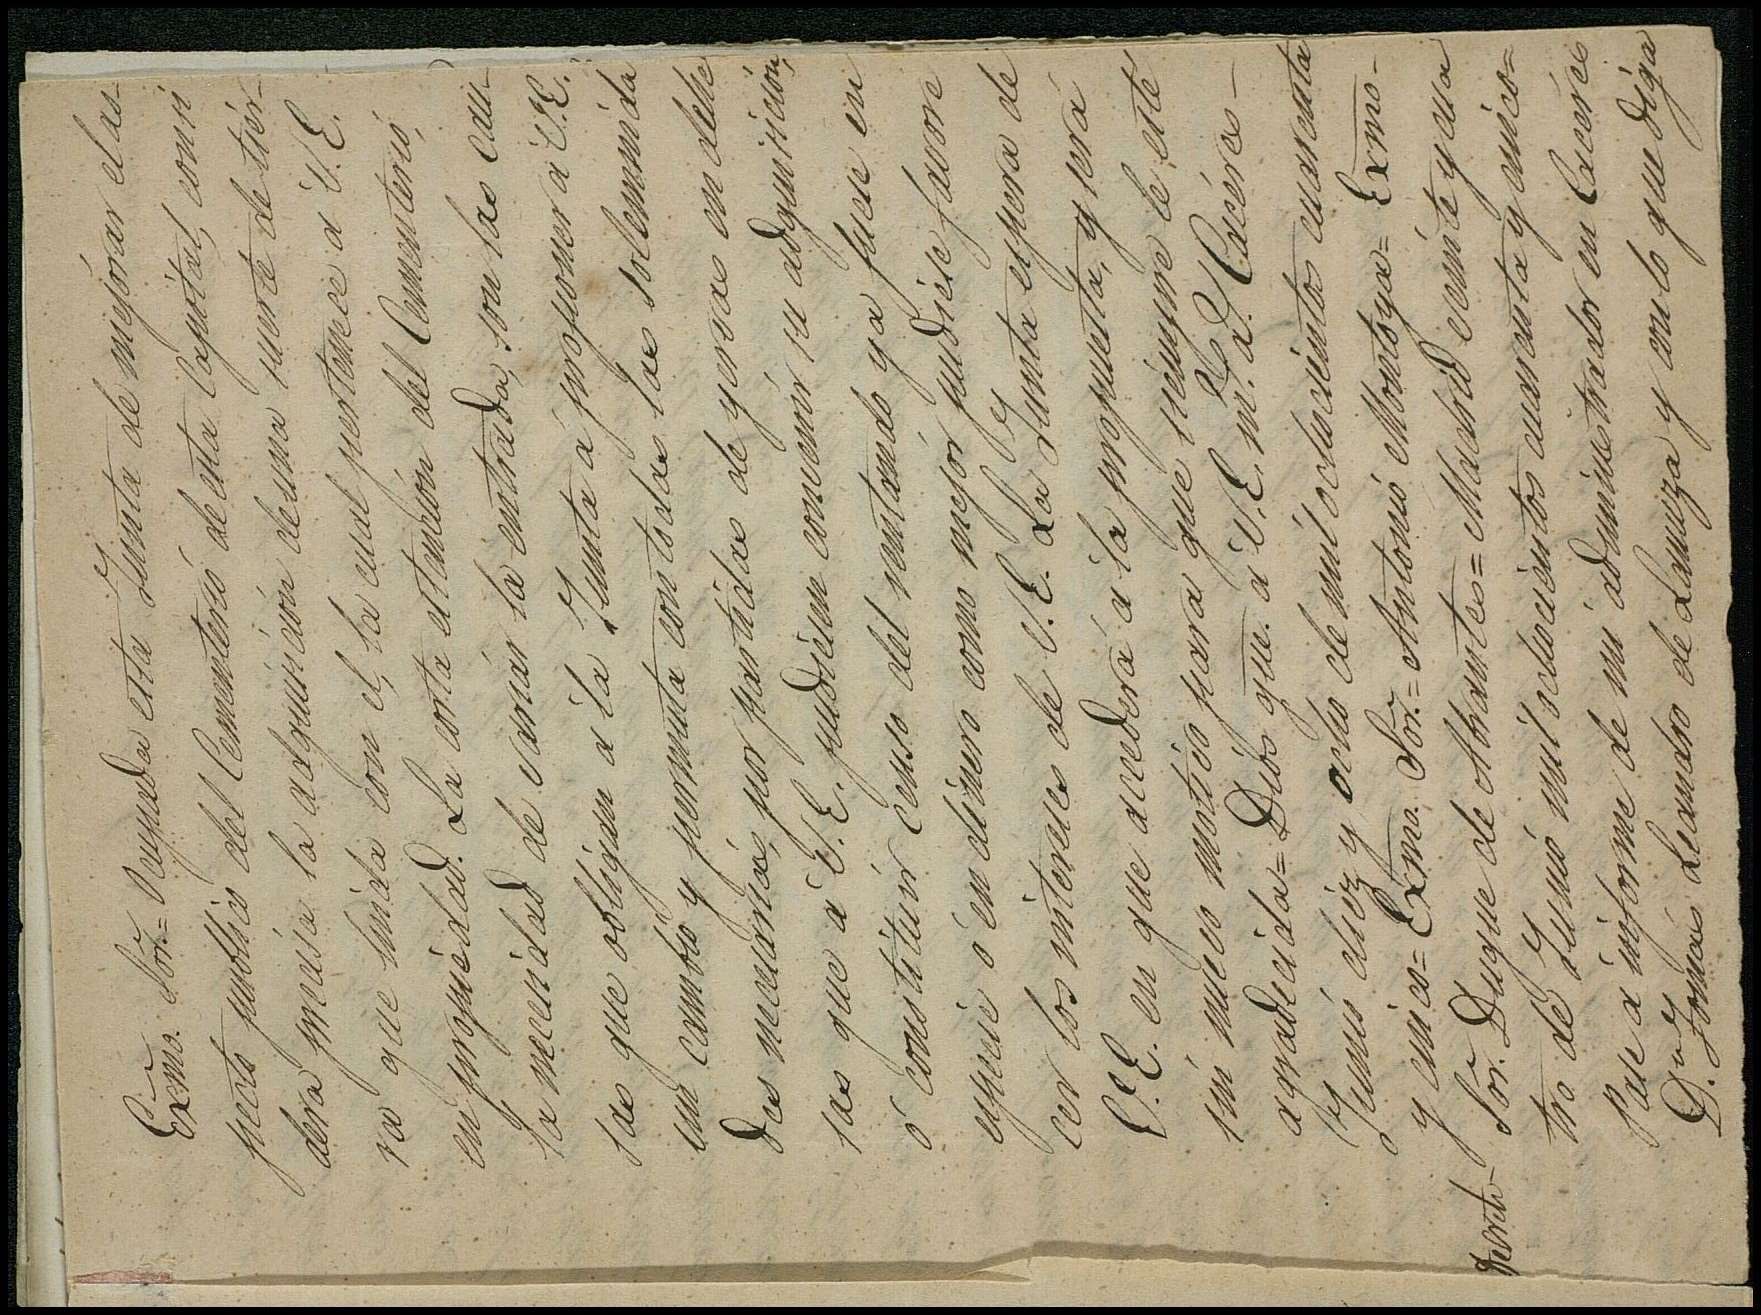 Exmo. Sōr.= Ocupada esta Junta de mejorar el as-
pecto publico del Cementerio de esta Capital, consi
dera precisa la adquisición de una suerte de tier-
ra que linda con el, la cual pertenece a V.E.
en propiedad. La corta estensión del Cementerio,
la necesidad de variar la entrada, son las cau-
sas que obligan a la Junta a proponer a V.E.
un cambio y permuta con todas las solemnida
des necesarias, por partidas de yervas en dehe
sas que a V.E. pudiesen convenir su adquisición,
o constituir censo del rentando ya fuese en
especie o en dinero como mejor pudiese favore
cer los intereses de V.E. La Junta espera de
V.E. en que accederá a la propuesta, y será
un nuevo motivo para que siempre le esté
agradecida= Dios gue. a V.E. m.s a.s Cáceres
Junio diez y ocho de mil ochocientos cuarenta
y cinco= Exmo. Sōr.= Antonio Montoya= Exmo.
Sōr. Duque de Abrantes= Madrid veinte y cua
tro de Junio mil ochocientos cuarenta y cinco=
Pase a informe de mi administrador en Cáceres
D.n Tomás Leandro de Lamuza y con lo que diga